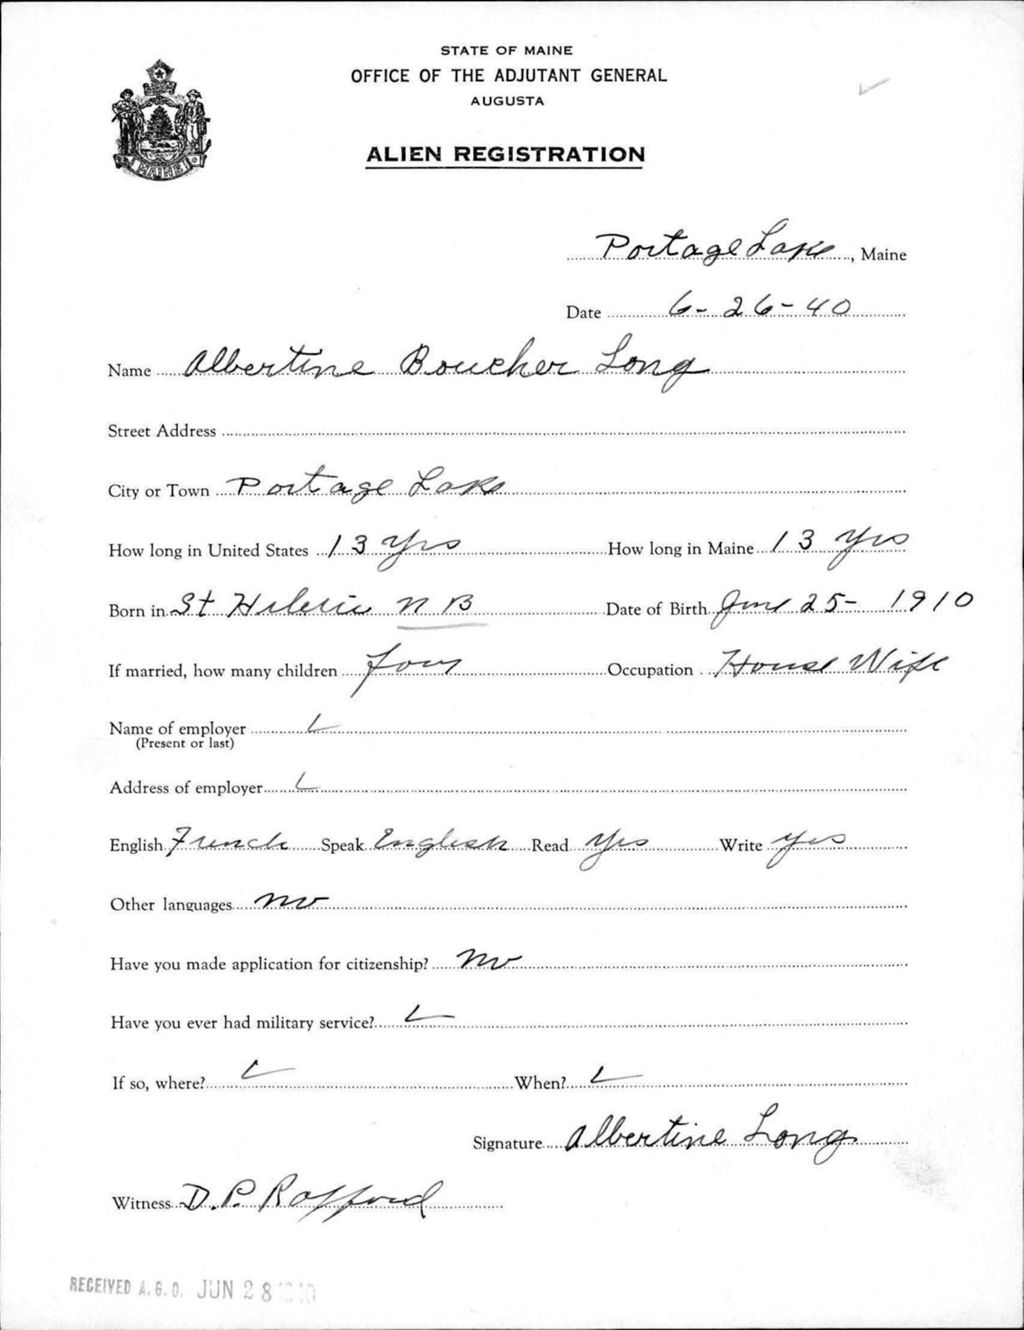 STATE OF MAINE
OFFICE OF THE ADJUTANT GENERAL
AUGUSTA
ALIEN REGISTRATION
MAINE
Portage Lake, Maine
Date 6-26-40
Name Albertine Boucher Long
Street Address
City or Town Portage Lake
How long in United States 13 Yrs How long in Maine 13 Yrs
Born in St Hilerie N B Date of Birth June 25- 1910
If married, how many children four Occupation House Wife
Name of employer
(Present or last)
Address of employer
English French Speak English Read Yes Write Yes
Other languages no
Have you made application for citizenship? no
Have you ever had military service?
If so, where? When?
Signature Albertine Long
Witness D. P. Rafford
RECEIVED A. G. O. JUN 28 1940